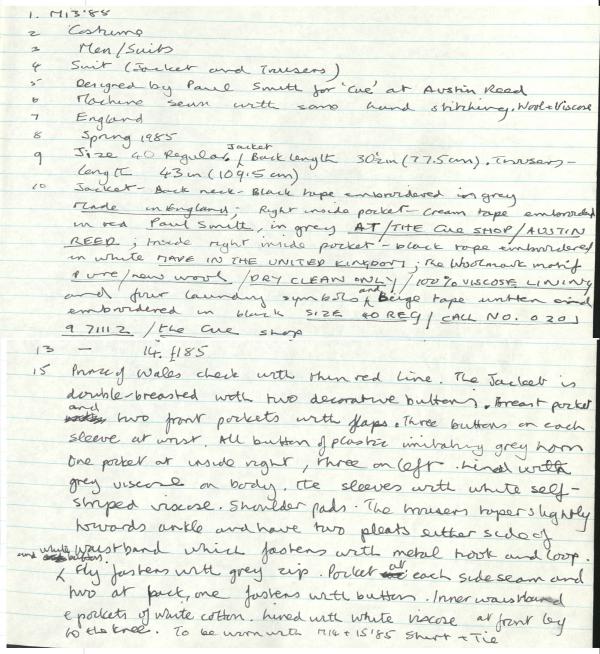 1. M13'85
2 Costume
3 Men/Suits
4 Suit (Jacket and Trousers)
5 Designed by Paul Smith for 'Cue' at Austin Reed
6 Machine sewn with some hand stitching. Wool + Viscose
7 England
8 Spring 1985
9 Size 40 Regular / Jacket Back length 30½in (77.5cm). Trousers -
length 43in (109.5cm)
10 Jacket - Back neck - Black tape embroidered in grey
Made in England; Right inside pocket - cream tape embroidered
in red Paul Smith, in grey AT/THE CUE SHOP/AUSTIN
REED; Inside right inside pocket - black tape embroidered
in white MADE IN THE UNITED KINGDOM; the Woolmark motif
Pure/new wool/DRY CLEAN ONLY/100% VISCOSE LINING
and four laundry symbols and Beige tape written and
embroidered in black SIZE 40 REG/CALL NO. 0201
9 7111 2/the Cue shop
13 — 14. £185
15 Prince of Wales check with thin red line. The Jacket is
double-breasted with two decorative buttons. Breast pocket
and two front pockets with flaps. Three buttons on each
sleeve at wrist. All button of plastic imitating grey horn
One pocket at inside right, three on left. Lined with
grey viscose on body. The sleeves with white self-
striped viscose. Shoulder pads. The trousers taper slightly
towards ankle and have two pleats either side of
waistband which fastens with metal hook and loop.
and white button. Fly fastens with grey zip. Pocket at each side seam and
two at back, one fastens with button. Inner waistband
e pockets of white cotton. Lined with white viscose at front leg
to the knee. To be worn with M14 + 15'85 Shirt + Tie